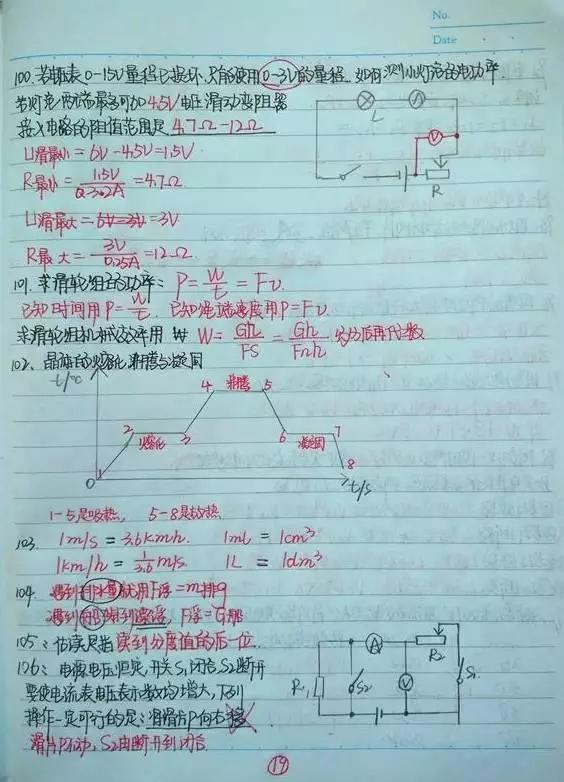 No.
Date
100. 若电压表0-15V量程已损坏,只能使用0-3V的量程,如何测小灯泡的电功率
若灯泡两端最多可加4.5V电压滑动变阻器
接入电路的阻值范围是 4.7Ω-12Ω
U滑最小=6V-4.5V=1.5V
R最小=1.5V/0.32A=4.7Ω
U滑最大=6V-3V=3V
R最大=3V/0.25A=12Ω
L
A
V
R
101. 求滑轮组的功率: P=W/t=Fv.
已知时间用P=W/t. 已知绳端速度用P=Fv
求滑轮组机械效率用 W=Gh/FS=Gh/Fnh 约分后再代数
102. 晶体的熔化沸腾与凝固
t/℃
4 沸腾 5
2 熔化 3
6 凝固 7
1
8
0
t/s
1-5是吸热, 5-8是放热
103. 1m/s=3.6km/h. 1mL=1cm³
1km/h=1/3.6m/s. 1L=1dm³
104. 遇到排水量就用F浮=m排g
遇到轮船想到漂浮, F浮=G船
105: 估读是指读到分度值的后一位.
106: 电源电压恒定,开关S₁闭合S₂断开
要使电流表电压表示数均增大,下列
操作一定可行的是:将滑片P向右移
滑片P不动,S₂由断开到闭合
R₁
S₂
A
V
R₂
S₁
19